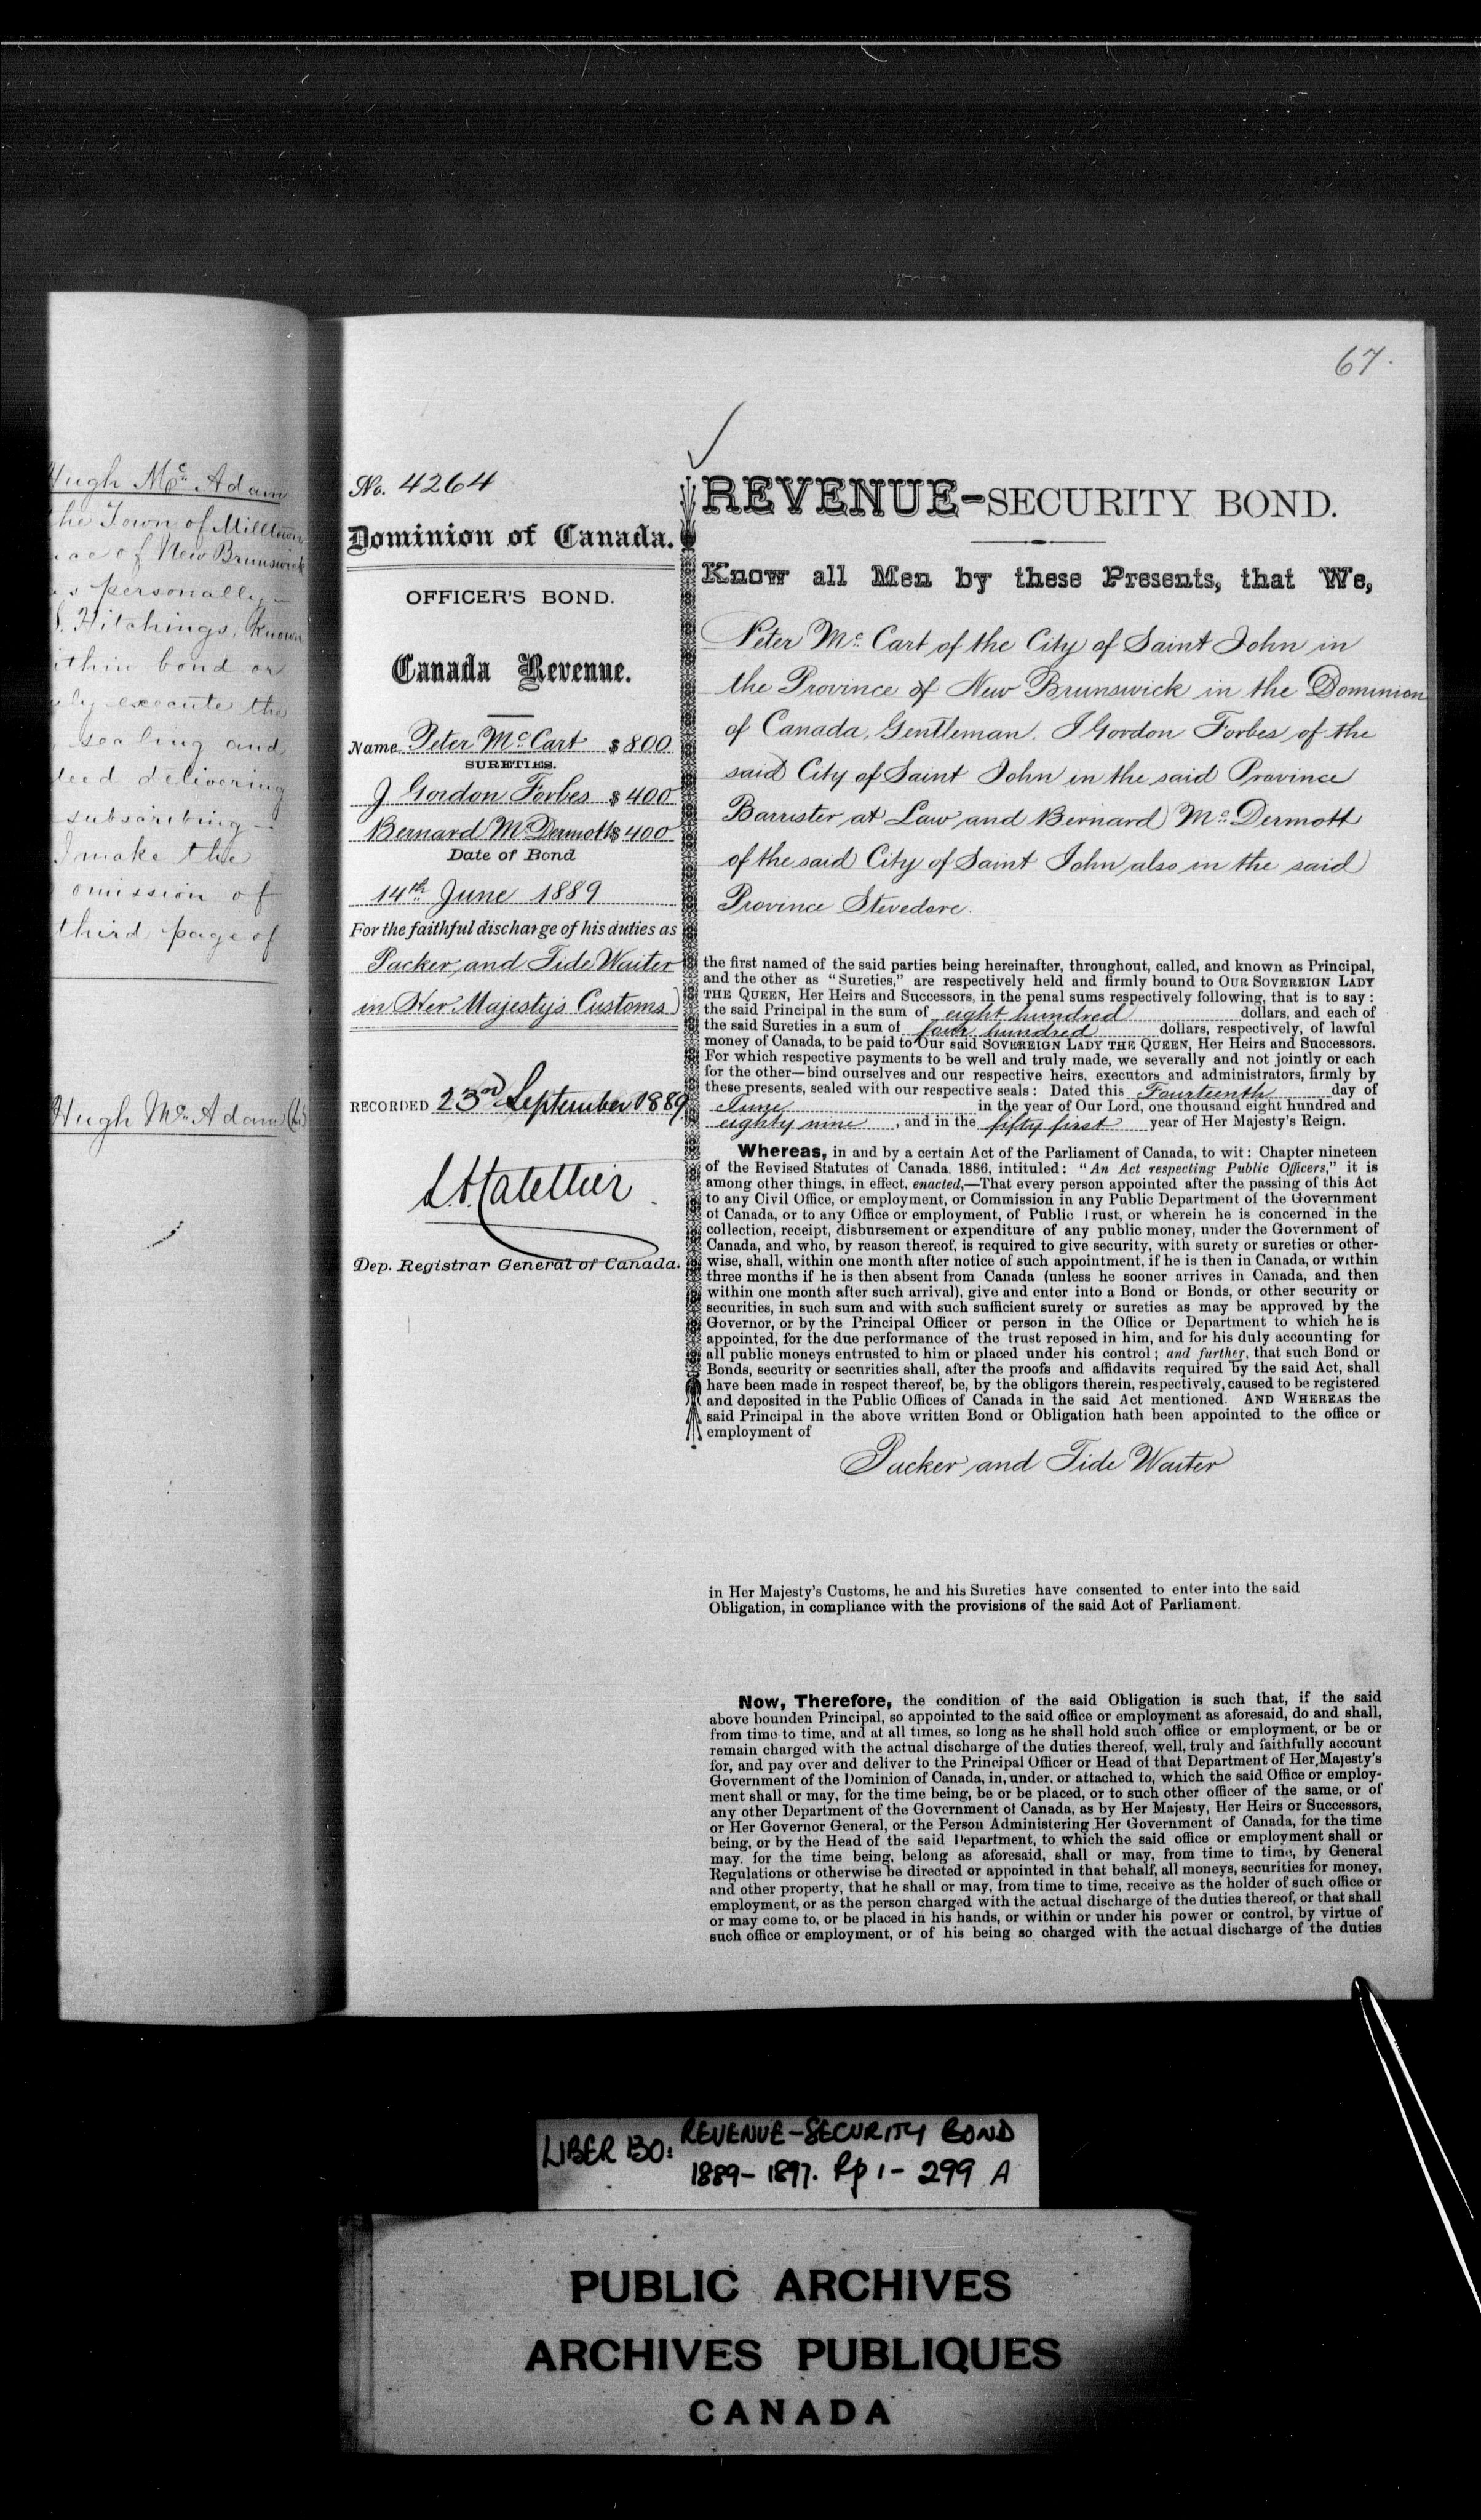 Hugh Mc Adam
he Town of Milltown
ce of New Brunswick
personally
Hitchings, known
ithin bond or
execute the
sealing and
deed delivering
subscribing
I make the
omission of
third page of
Hugh Mc Adam
67.
No. 4264
Dominion of Canada.
OFFICER'S BOND.
Canada Revenue.
Name Peter Mc Cart $ 800
SURETIES.
J Gordon Forbes $ 400
Bernard Mc Dermott $ 400
Date of Bond
14th June 1889
For the faithful discharge of his duties as
Packer and Tide Waiter
in Her Majesty's Customs
RECORDED 23rd September 1889
Dep. Registrar General of Canada.
REVENUE-SECURITY BOND.
Know all Men by these Presents, that We,
Peter Mc Cart of the City of Saint John in
the Province of New Brunswick in the Dominion
of Canada, Gentleman, J Gordon Forbes of the
said City of Saint John in the said Province
Barrister at Law and Bernard Mc Dermott
of the said City of Saint John also in the said
Province Stevedore.
the first named of the said parties being hereinafter, throughout, called, and known as Principal,
and the other as "Sureties," are respectively held and firmly bound to OUR SOVEREIGN LADY
THE QUEEN, Her Heirs and Successors, in the penal sums respectively following, that is to say :
the said Principal in the sum of eight hundred dollars, and each of
the said Sureties in a sum of four hundred dollars, respectively, of lawful
money of Canada, to be paid to Our said SOVEREIGN LADY THE QUEEN, Her Heirs and Successors.
For which respective payments to be well and truly made, we severally and not jointly or each
for the other—bind ourselves and our respective heirs, executors and administrators, firmly by
these presents, sealed with our respective seals : Dated this Fourteenth day of
June in the year of Our Lord, one thousand eight hundred and
eighty nine, and in the fifty first year of Her Majesty's Reign.
Whereas, in and by a certain Act of the Parliament of Canada, to wit : Chapter nineteen
of the Revised Statutes of Canada, 1886, intituled : "An Act respecting Public Officers," it is
among other things, in effect, enacted,—That every person appointed after the passing of this Act
to any Civil Office, or employment, or Commission in any Public Department of the Government
of Canada, or to any Office or employment, of Public Trust, or wherein he is concerned in the
collection, receipt, disbursement or expenditure of any public money, under the Government of
Canada, and who, by reason thereof, is required to give security, with surety or sureties or other-
wise, shall, within one month after notice of such appointment, if he is then in Canada, or within
three months if he is then absent from Canada (unless he sooner arrives in Canada, and then
within one month after such arrival), give and enter into a Bond or Bonds, or other security or
securities, in such sum and with such sufficient surety or sureties as may be approved by the
Governor, or by the Principal Officer or person in the Office or Department to which he is
appointed, for the due performance of the trust reposed in him, and for his duly accounting for
all public moneys entrusted to him or placed under his control ; and further, that such Bond or
Bonds, security or securities shall, after the proofs and affidavits required by the said Act, shall
have been made in respect thereof, be, by the obligors therein, respectively, caused to be registered
and deposited in the Public Offices of Canada in the said Act mentioned. AND WHEREAS the
said Principal in the above written Bond or Obligation hath been appointed to the office or
employment of
Packer and Tide Waiter
in Her Majesty's Customs, he and his Sureties have consented to enter into the said
Obligation, in compliance with the provisions of the said Act of Parliament.
Now, Therefore, the condition of the said Obligation is such that, if the said
above bounden Principal, so appointed to the said office or employment as aforesaid, do and shall,
from time to time, and at all times, so long as he shall hold such office or employment, or be or
remain charged with the actual discharge of the duties thereof, well, truly and faithfully account
for, and pay over and deliver to the Principal Officer or Head of that Department of Her Majesty's
Government of the Dominion of Canada, in, under, or attached to, which the said Office or employ-
ment shall or may, for the time being, be or be placed, or to such other officer of the same, or of
any other Department of the Government of Canada, as by Her Majesty, Her Heirs or Successors,
or Her Governor General, or the Person Administering Her Government of Canada, for the time
being, or by the Head of the said Department, to which the said office or employment shall or
may, for the time being, belong as aforesaid, shall or may, from time to time, by General
Regulations or otherwise be directed or appointed in that behalf, all moneys, securities for money,
and other property, that he shall or may, from time to time, receive as the holder of such office or
employment, or as the person charged with the actual discharge of the duties thereof, or that shall
or may come to, or be placed in his hands, or within or under his power or control, by virtue of
such office or employment, or of his being so charged with the actual discharge of the duties
LIBER 130: REVENUE-SECURITY BOND
1889-1897. Pp 1-299 A
PUBLIC ARCHIVES
ARCHIVES PUBLIQUES
CANADA